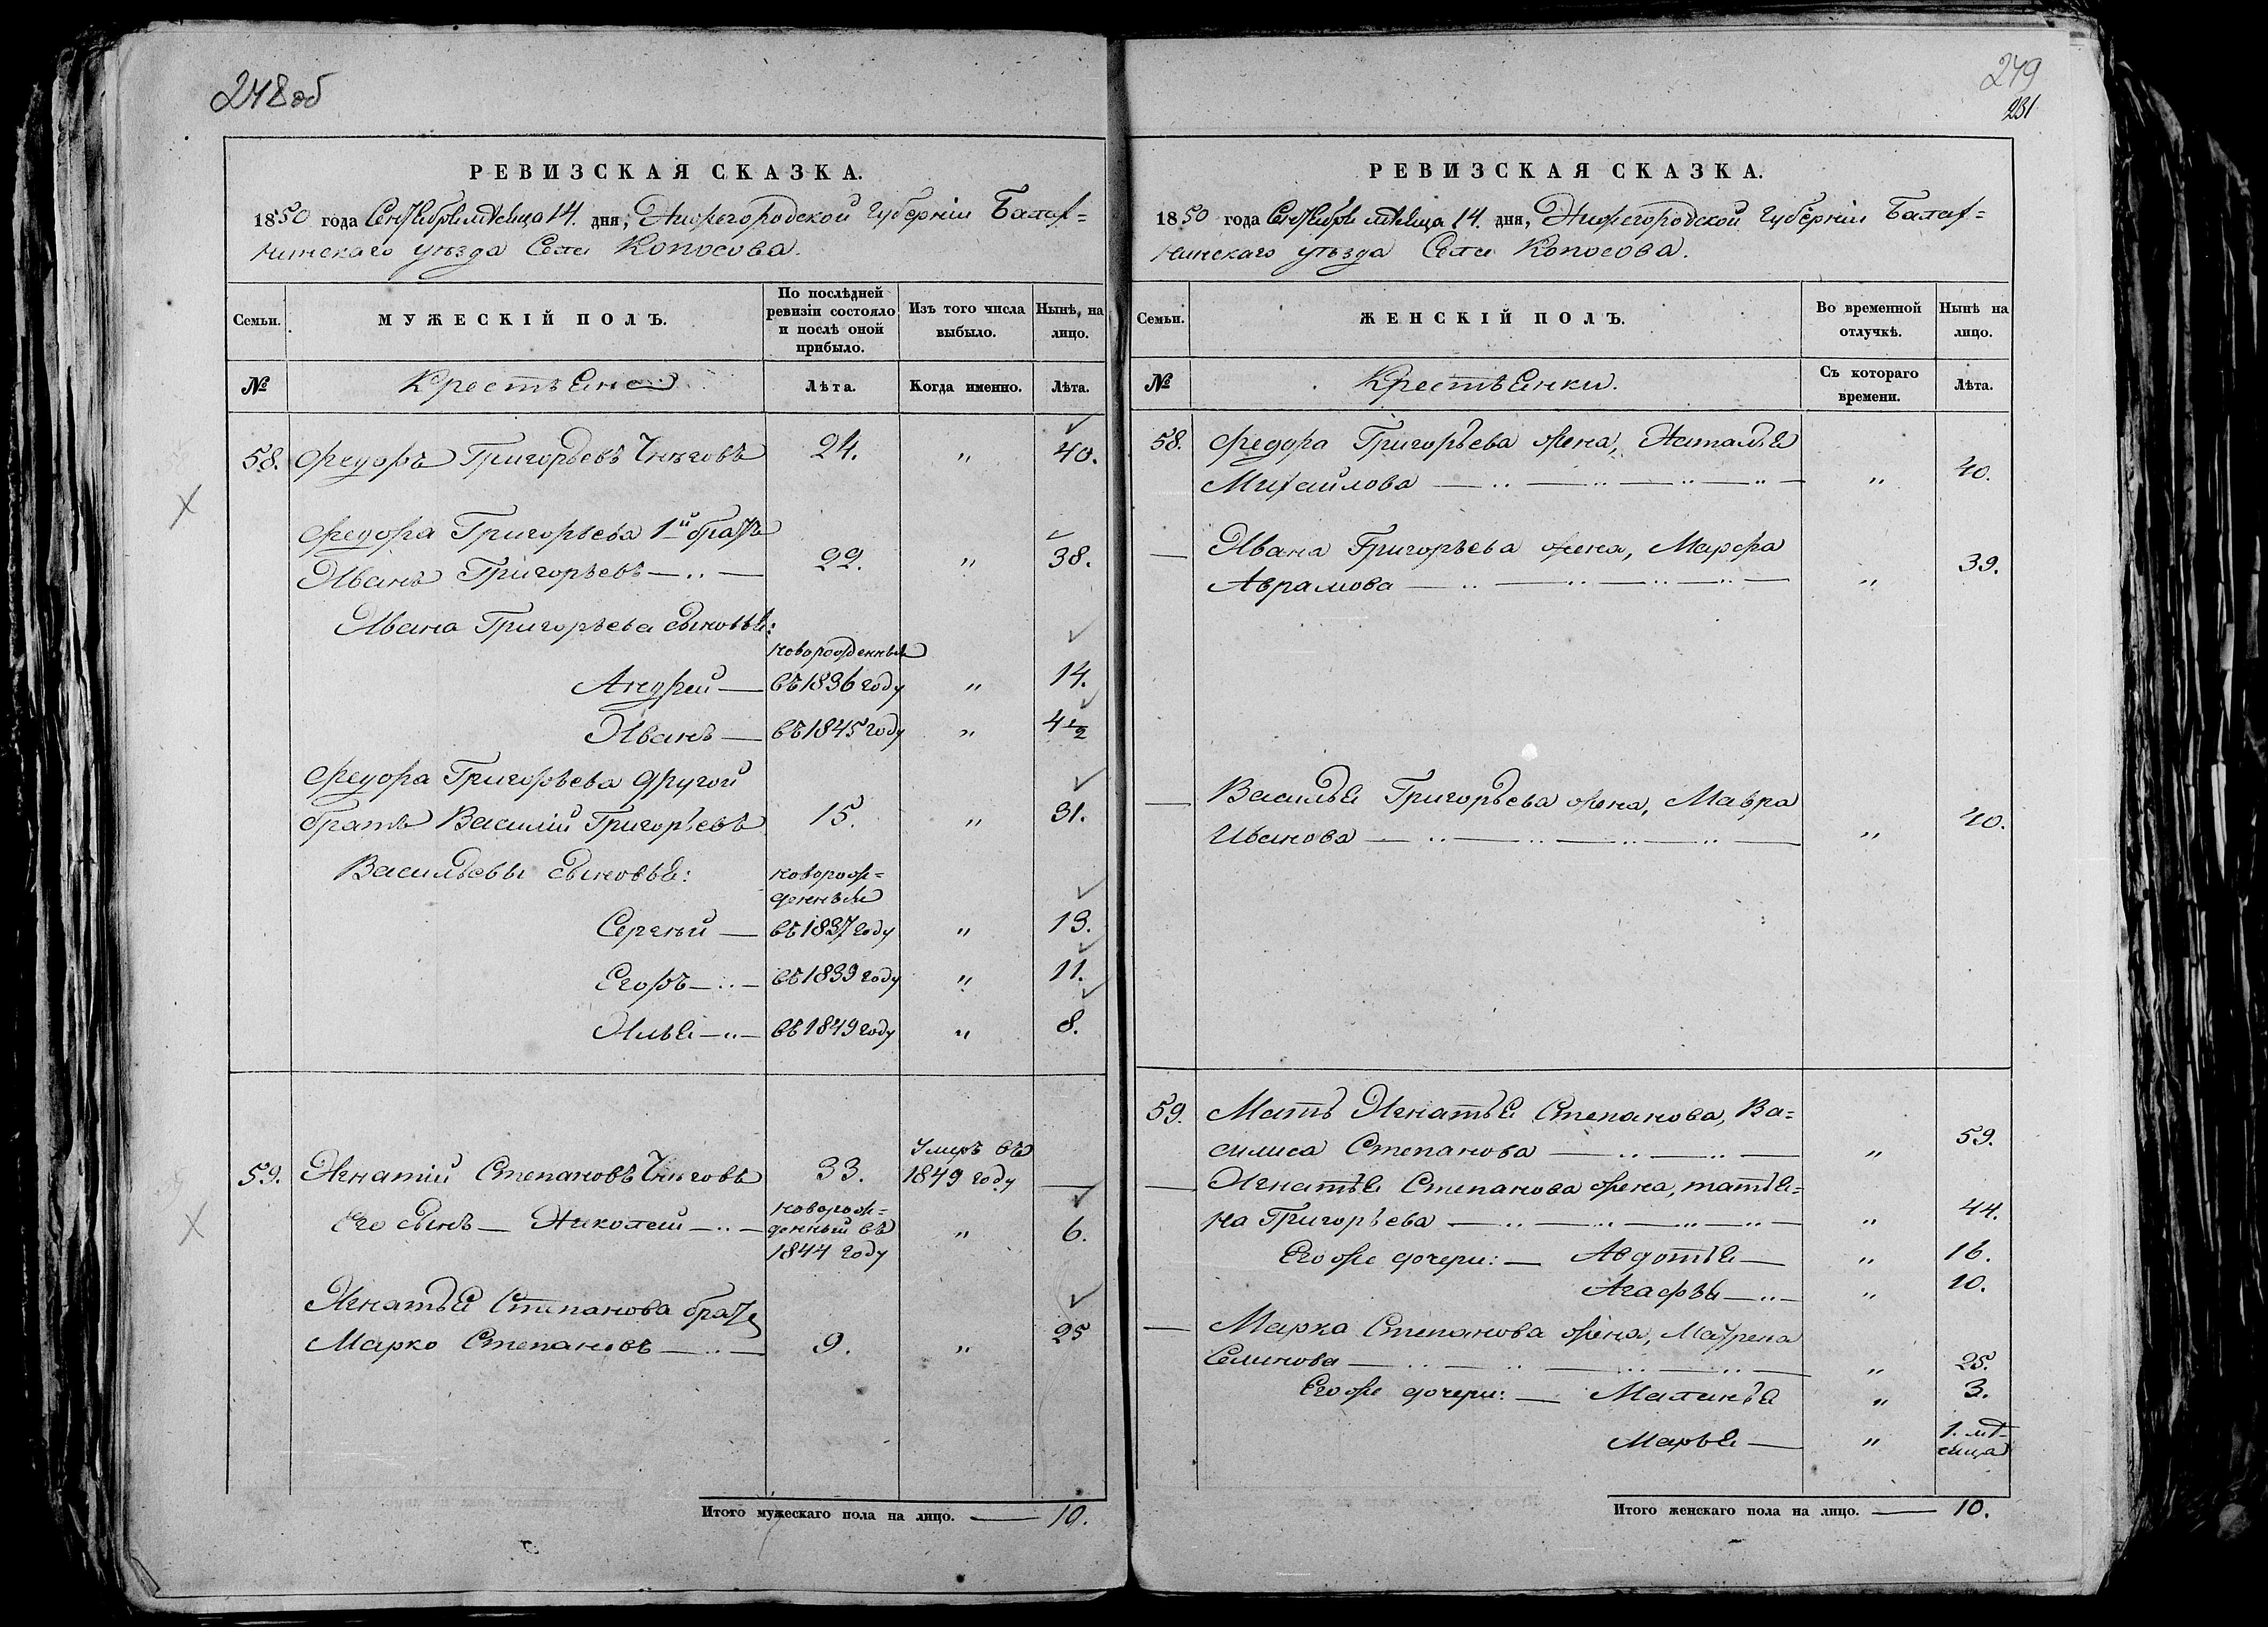 248 об
РЕВИЗСКАЯ СКАЗКА.
1850 года Сентября мѣсяца 14. дня, Нижегородской Губерніи Балах=
нинскаго уѣзда Села Копосова.
Семьи.
МУЖЕСКІЙ ПОЛЪ.
По послѣдней ревизіи состояло и послѣ оной прибыло.
Изъ того числа выбыло.
Нынѣ, на лицо.
№
Крестьяне
Лѣта.
Когда именно.
Лѣта.
58. Федоръ Григорьевъ 24. " 40.
Федора Григорьева 1й братъ
Иванъ Григорьевъ 22. " 38.
Ивана Григорьева сыновья:
новорожденный
Андрей — въ 1836 году " 14.
Иванъ — въ 1845 году " 4 1/2
Федора Григорьева другой
братъ Василій Григорьевъ 15. " 31.
Васильевы сыновья: новорож=
денный
Сергѣй — въ 1837 году " 13.
Егоръ — въ 1839 году " 11.
Илья — въ 1849 году " 8.
Умеръ въ
59. Игнатій Степановъ 33. 1849 году —
новорож=
Его сынъ — Николай — денный въ " 6.
1844 году
Игнатья Степанова братъ
Марко Степановъ 9. " 25
Итого мужескаго пола на лицо. — 10.
249
231
РЕВИЗСКАЯ СКАЗКА.
1850 года Сентября мѣсяца 14. дня, Нижегородской Губерніи Балах=
нинскаго уѣзда Села Копосова.
Семьи.
ЖЕНСКІЙ ПОЛЪ.
Во временной отлучкѣ.
Нынѣ на лицо.
№
Крестьянки.
Съ котораго времени.
Лѣта.
58. Федора Григорьева жена, Наталья
Михайлова " 40.
— Ивана Григорьева жена, Марфа
Аврамова " 39.
— Василья Григорьева жена, Мавра
Иванова " 40.
59. Мать Игнатья Степанова, Ва=
силиса Степанова " 59.
— Игнатья Степанова жена, Татья=
на Григорьева " 44.
Его же дочери: — Авдотья — " 16.
Агафья " 10.
— Марка Степанова жена, Матрена
Семинова " 25.
Его же дочери: — Маланья " 3.
Марья — " 1. мѣ=
сяца
Итого женскаго пола на лицо. — 10.